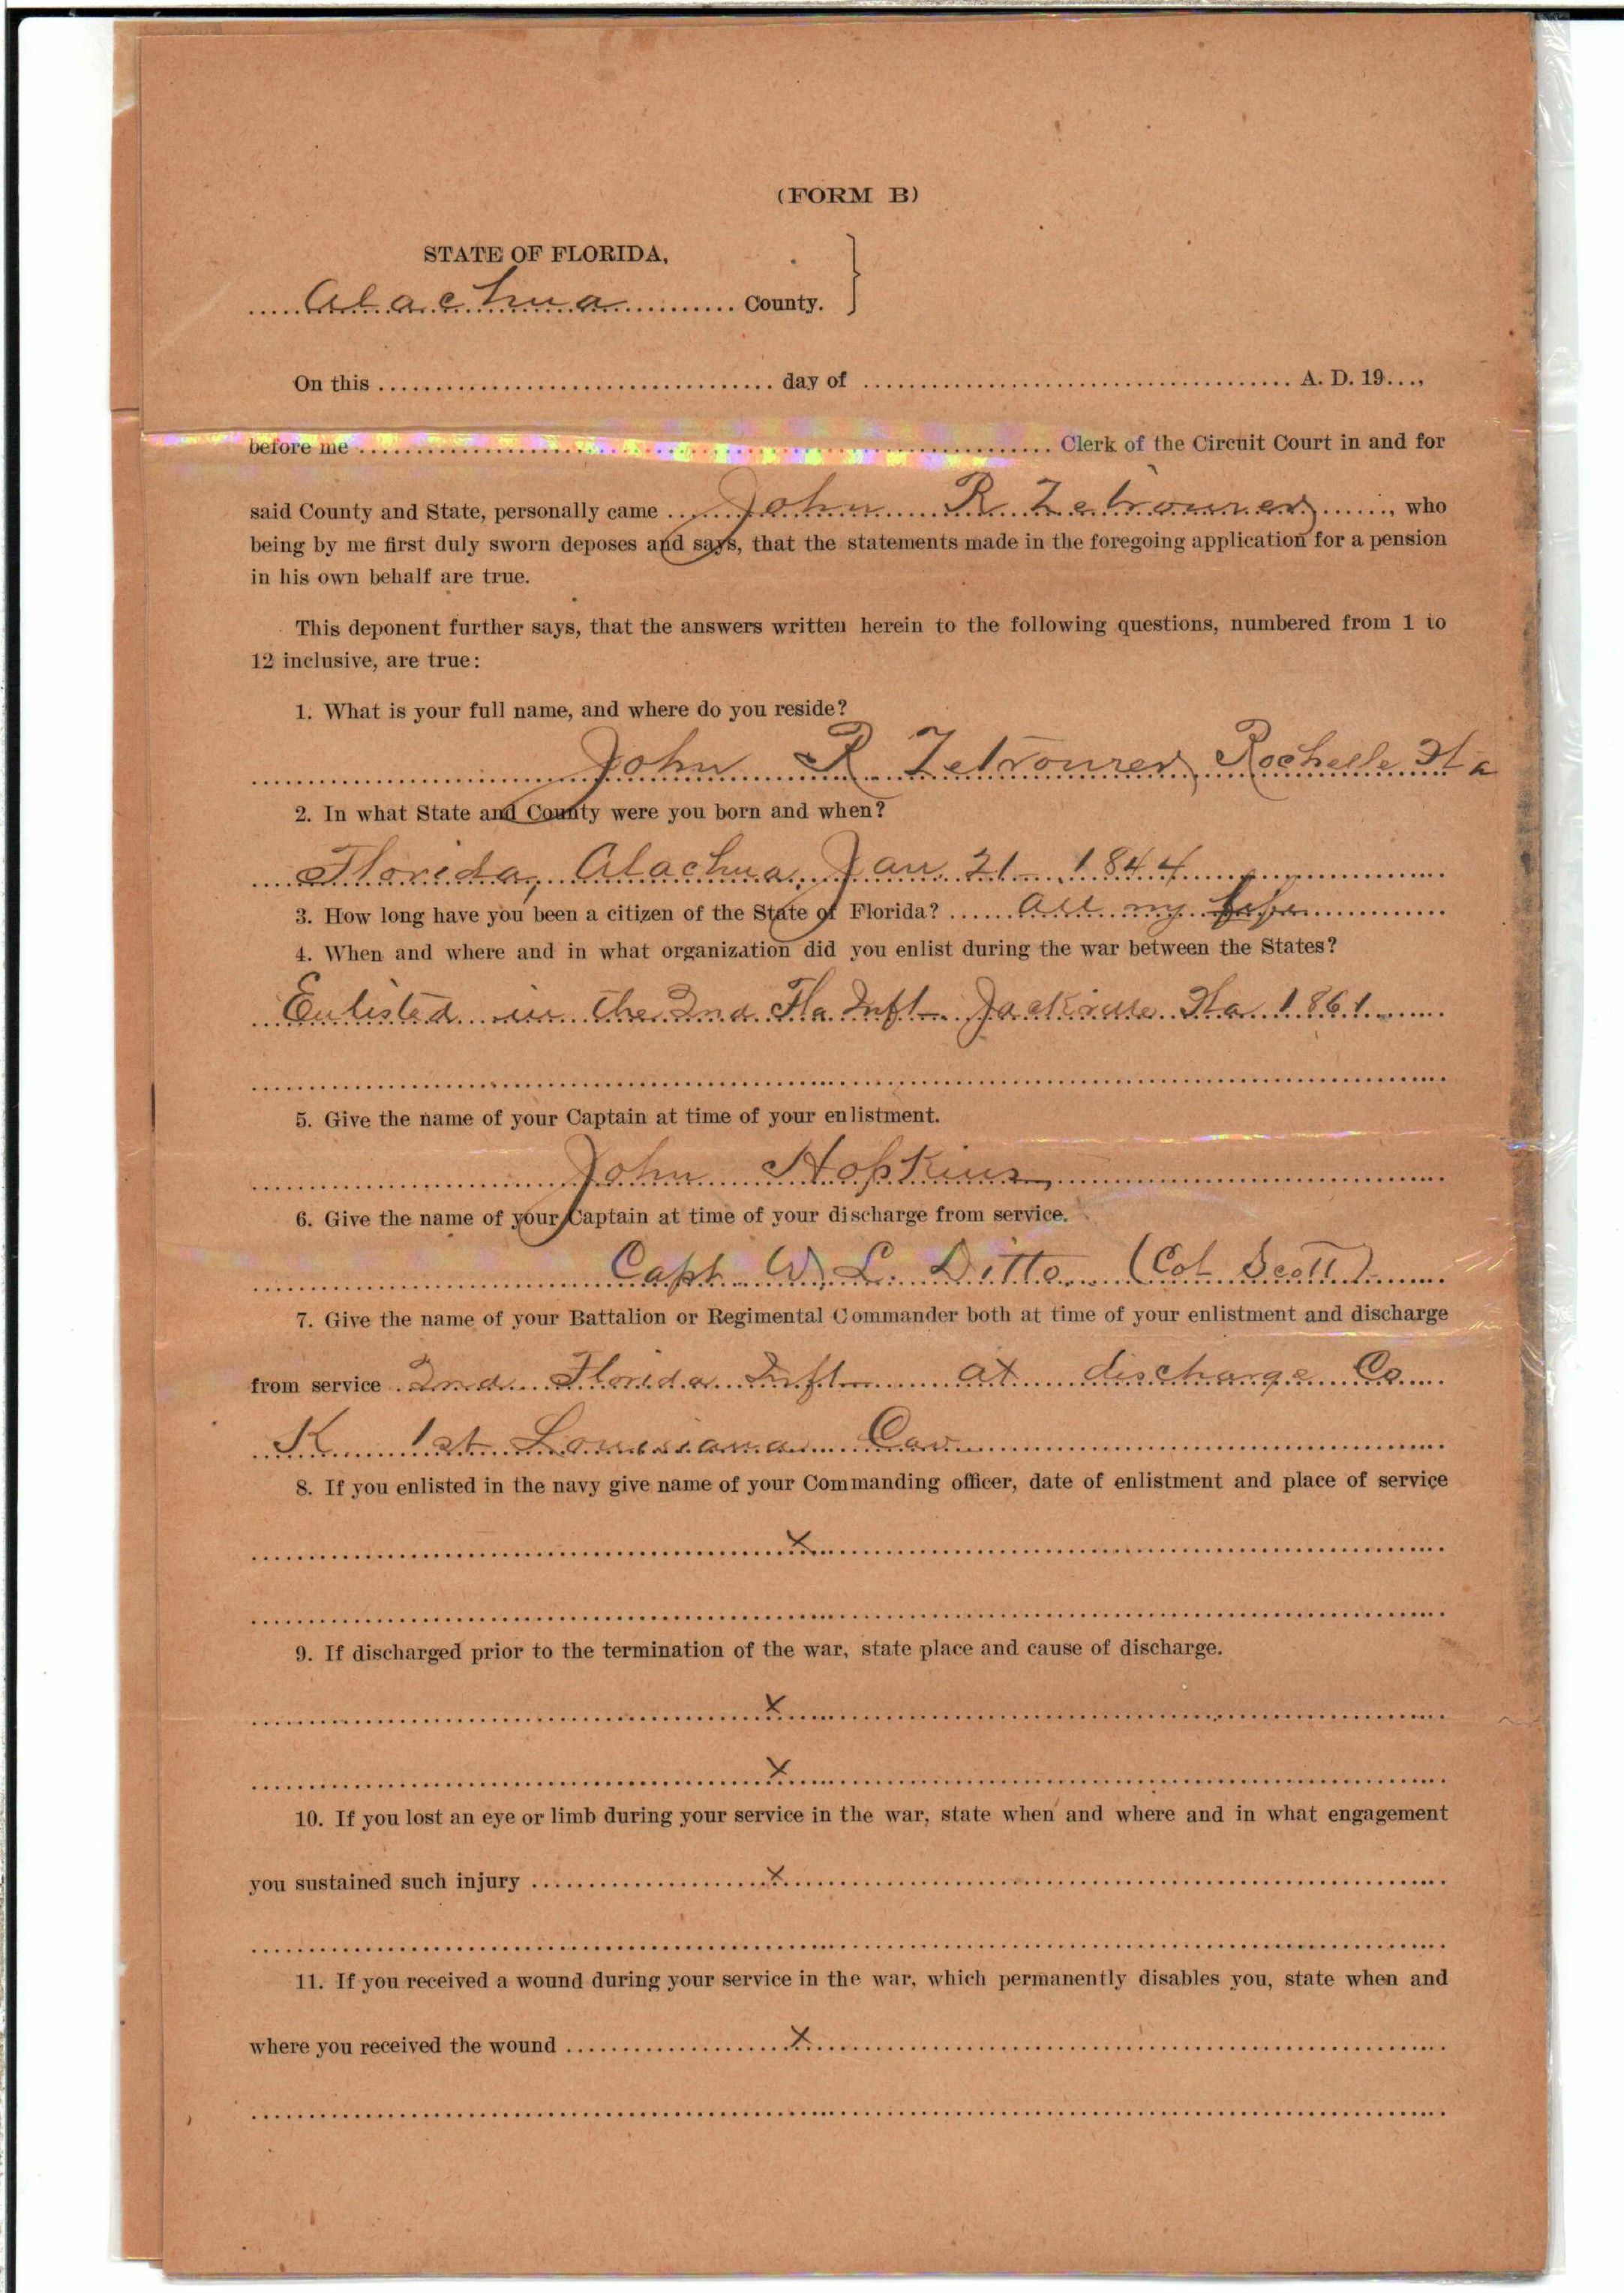 (FORM B)
STATE OF FLORIDA,
Alachua County.
On this day of A. D. 19...,
before me Clerk of the Circuit Court in and for
said County and State, personally came John R Zetrouer, who
being by me first duly sworn deposes and says, that the statements made in the foregoing application for a pension
in his own behalf are true.
This deponent further says, that the answers written herein to the following questions, numbered from 1 to
12 inclusive, are true:
1. What is your full name, and where do you reside?
John R Zetrouer, Rochelle Fla
2. In what State and County were you born and when?
Florida, Alachua, Jan 21 - 1844
3. How long have you been a citizen of the State of Florida? All my life
4. When and where and in what organization did you enlist during the war between the States?
Enlisted in the 2nd Fla Inft - Jackville Fla 1861
5. Give the name of your Captain at time of your enlistment.
John Hopkins
6. Give the name of your Captain at time of your discharge from service.
Capt. W. L. Ditto (Col Scott)
7. Give the name of your Battalion or Regimental Commander both at time of your enlistment and discharge
from service 2nd Florida Inft at discharge Co
K 1st Louisiana Cav
8. If you enlisted in the navy give name of your Commanding officer, date of enlistment and place of service
x
9. If discharged prior to the termination of the war, state place and cause of discharge.
x
x
10. If you lost an eye or limb during your service in the war, state when and where and in what engagement
you sustained such injury x
11. If you received a wound during your service in the war, which permanently disables you, state when and
where you received the wound x